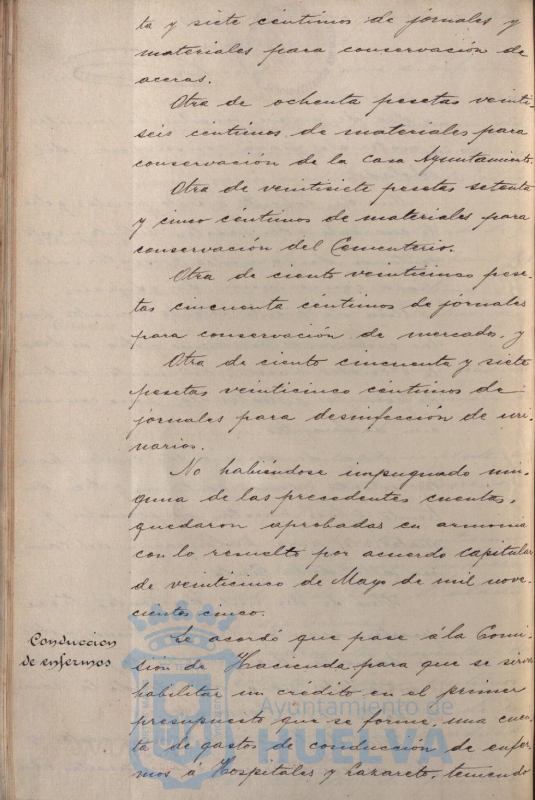 ta y siete céntimos de jornales y
materiales para conservación de
aceras.
Otra de ochenta pesetas veinti-
seis céntimos de materiales para
conservación de la Casa Ayuntamiento.
Otra de veintisiete pesetas setenta
y cinco céntimos de materiales para
conservación del Cementerio.
Otra de ciento veinticinco pese-
tas cincuenta céntimos de jornales
para conservación de mercados, y
Otra de ciento cincuenta y siete
pesetas veinticinco céntimos de
jornales para desinfección de uri-
narios.
No habiéndose impugnado nin-
guna de las precedentes cuentas,
quedaron aprobadas en armonia
con lo resuelto por acuerdo capitular
de veinticinco de Mayo de mil nove-
cientos cinco.
Conduccion
de enfermos
Se acordó que pase á la Comi-
sión de Hacienda para que se sirva
habilitar un crédito en el primer
presupuesto que se forme, una cuen-
ta de gastos de conducción de enfer-
mos á Hospitales y Lazareto, teniendo
Ayuntamiento de
HUELVA